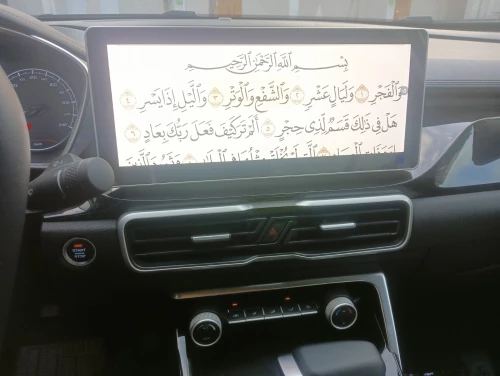 بِسْمِ ٱللَّهِ ٱلرَّحْمَٰنِ ٱلرَّحِيمِ
وَٱلْفَجْرِ ١ وَلَيَالٍ عَشْرٍ ٢ وَٱلشَّفْعِ وَٱلْوَتْرِ ٣ وَٱلَّيْلِ إِذَا يَسْرِ ٤
هَلْ فِي ذَٰلِكَ قَسَمٌ لِّذِي حِجْرٍ ٥ أَلَمْ تَرَ كَيْفَ فَعَلَ رَبُّكَ بِعَادٍ ٦
START
STOP